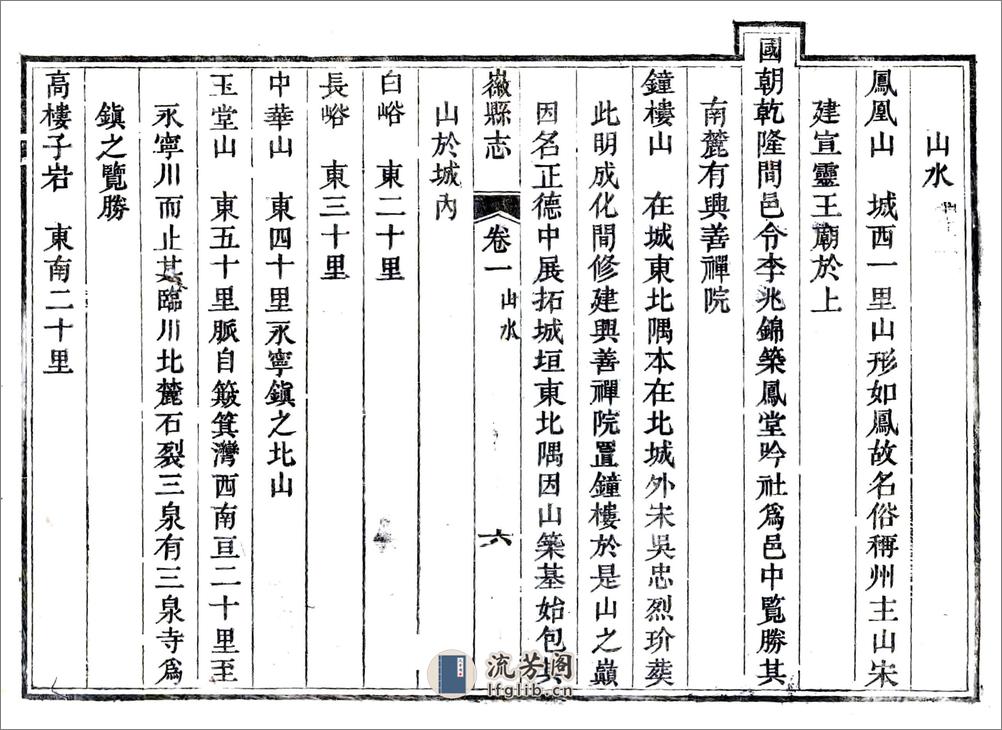 山水
鳳凰山　城西一里山形如鳳故名俗稱州主山宋
建宣靈王廟於上
國朝乾隆間邑令李兆錦築鳳堂吟社爲邑中覽勝其
南麓有興善禪院
鐘樓山　在城東北隅本在北城外未吳忠烈玠葬
此明成化間修建興善禪院置鐘樓於是山之巔
因名正德中展拓城垣東北隅因山築基始包其
徽縣志　卷一　山水　六
山於城內
白峪　東二十里
長峪　東三十里
中華山　東四十里永寧鎭之北山
玉堂山　東五十里脈自簸箕灣西南亘二十里至
永寧川而止其臨川北麓石裂三泉有三泉寺爲
鎭之覽勝
高樓子岩　東南二十里
流芳阁
lfglib.cn